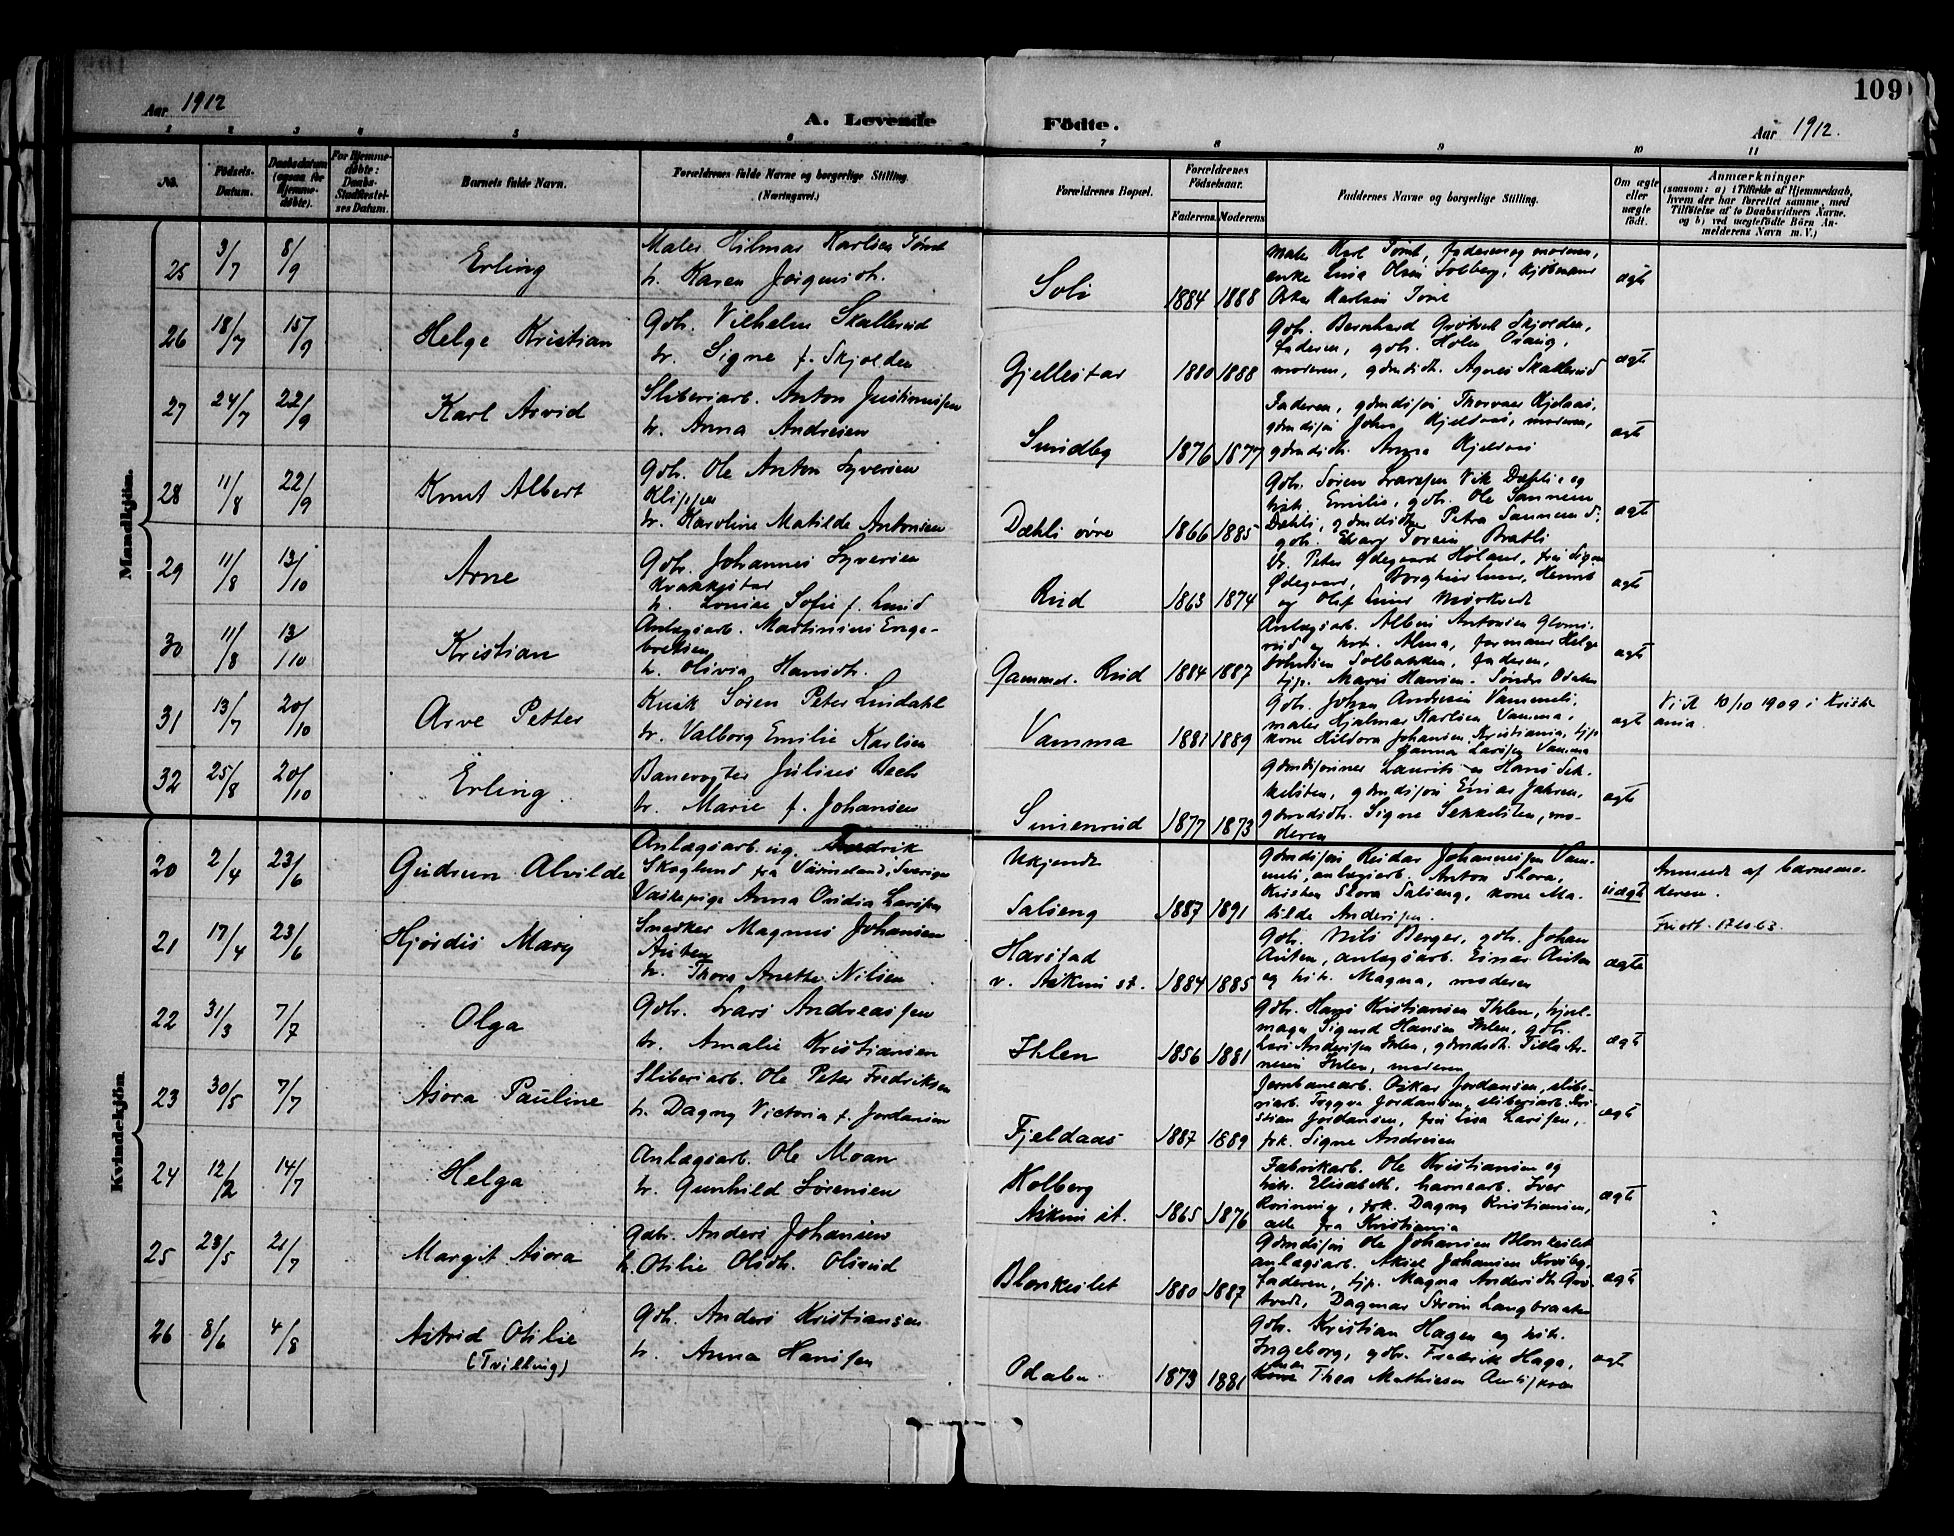 109
Aar 1912
A. Levende Födte.
Aar 1912.
1 2 3 4 5 6 7 8 9 10 11
No.
Födsels-
Datum.
Daabsdatum
(ogsaa for
Hjemme-
döbte).
For Hjemme-
döbte:
Daabs-
Stadfæstel-
ses Datum.
Barnets fulde Navn.
Forældrenes fulde Navne og borgerlige Stilling.
(Næringsvei.)
Forældrenes Bopæl.
Forældrenes
Födselsaar.
Faderens. Moderens.
Faddernes Navne og borgerlige Stilling.
Om ægte
eller
uægte
födt.
Anmærkninger
(saasom: a) i Tilfælde af Hjemmedaab,
hvem der har forrettet samme, med
Tilföielse af to Daabsvidners Navne,
og b) ved uægtefödte Börn An-
melderens Navn m. V.)
Mandkjön.
25 3/7 8/9 Erling
Maler Hilmar Karlsen Tömt
h. Karen Jörgensdt.
Soli 1884 1888
Maler Karl Tömt, faderen og moderen,
enke Lina Olsen Solberg, kjöbmand
Oskar Karlsen Tömt
ægte
26 18/7 15/9 Helge Kristian
Gdb. Vilhelm Skallerud
h. Signe f. Skjolden
Gjellestar 1880 1888
Gdb. Bernhard Grötvedt Skjolden,
faderen, gdb. Holm Osaug,
moderen, gdmdsdt. Agnes Skallerud
ægte
27 24/7 22/9 Karl Arvid
Sliberiarb. Anton Justinussen
h. Anna Andresen
Sundby 1876 1877
Faderen, gdmdssön Thorvald Kjelaas,
gdmdssön Johs. Kjelaas, moderen,
gdmdsdt. Anna Kjelaas
ægte
28 11/8 22/9 Knut Albert
Gdb. Ole Anton Syversen
Klipper
h. Karoline Matilde Antonsen
Dæhli övre 1866 1885
Gdb. Sören Larssen Vik Dæhlie og
hst. Emilie, gdb. Ole Sannem
Dæhli, gdmdsdt. Petra Sannem
gdb. Edvard Torsen Bratli
ægte
29 11/8 13/10 Arne
Gdb. Johannes Syversen
Kvakkestad
h. Lovise Sofie f. Lund
Rud 1863 1874
Gb. Peter Ødegaard Höland, fru Signe
Ødegaard, Borghild Lund, Henrik
og Olif Lund Mörkved
ægte
30 11/8 13/10 Kristian
Anlægsarb. Martinius Enge-
bretsen
h. Olivia Hansdt.
Gammel. Rud 1884 1887
Anlægsarb. Albin Antonsen Gloms-
rud og hst. Alma, formand Helge
Johnsen Solbakken, faderen,
tjp. Marie Hansen. Söndre Odalen
ægte
31 13/7 20/10 Arve Petter
Kusk Sören Peter Lindahl
h. Valborg Emilie Karlsen
Vamma 1881 1889
Gdb. Johan Andresen Vammeli,
maler Hjalmar Karlsen Vamma,
kone Hildora Johansen Kristiania, tjp
Hanna Larssen Vamma
ægte
Viet 10/10 1909 i Kristi-
ania.
32 25/8 20/10 Erling
Banevogter Julius Bech
h. Marie f. Johansen
Simenrud 1877 1873
Gdmdssönner Laurits og Hans Sek-
kelsten, gdmdssön Einar Jahren,
gdmdsdt. Signe Sekkelsten, mo-
deren
ægte
Kvindekjön
20 2/4 23/6 Gudrun Alvilde
Anlægsarb. ug. Fredrik
Skoglund fra Värmland, Sverige
Vaskepige Anna Ovidia Larssen
Ukjendt
Salseng 1887 1891
Gdmdssön Reidar Johannessen Vam-
meli, anlægsarb. Anton Slora,
Kristen Slora Salseng, kone Ma-
tilde Anderssen.
uægte
Anmeldt af barnemo-
deren.
21 17/4 23/6 Hjördis Mary
Snedker Magnus Johansen
Auten
h. Thora Anette Nilsen
Harstad
v. Askim st. 1884 1885
Gdb. Nils Berger, gdb. Johan
Auten, anlægsarb. Einar Auten
og hst. Magna, moderen
ægte
22 31/3 7/7 Olga
Gdb. Lars Andreassen
h. Amalie Kristiansen
Ihlen 1856 1881
Gdb. Hans Kristiansen Ihlen, hjul-
mager Sigurd Hansen Ihlen, gdb.
Lars Anderssen Ihlen, gdmdsdt. Tilla Ar-
nesen Ihlen, moderen
ægte
23 30/5 7/7 Asora Pauline
Sliberiarb. Ole Peter Fredriksen
h. Dagny Victoria f. Jordansen
Fjeldaas 1887 1889
Jernbanearb. Oskar Jordansen, slibe-
riarb. Trygve Jordansen, sliberiarb. Kri-
stian Jordansen, fru Lisa Larssen,
frk. Signe Andresen
ægte
24 12/2 14/7 Helga
Anlægsarb. Ole Moan
h. Gunhild Sörensen
Kolberg
Askim st. 1865 1876
Fabrikarb. Ole Kristiansen og
hst. Elisabeth, havnearb. Iver
Rönning, frk. Dagny Kristiansen,
alle fra Kristiania
ægte
25 23/5 21/7 Margit Asora
Gdb. Anders Johansen
h. Otilie Olsdt. Olsrud
Blonkeslet 1880 1887
Gdmdssön Ole Johansen Blonkeslet
anlægsarb. Aksel Johansen Kroshg,
faderen, tjp. Magna Andersdt. Grö-
tvedt, Dagmar Ström Langbraaten
ægte
26 8/6 4/8 Astrid Otilie
(Tvilling)
Gdb. Anders Kristiansen
h. Anna Hanssen
Odalen 1873 1881
Gdb. Kristian Hagen og hst.
Ingeborg, gdb. Fredrik Haga,
Thea Mathiesen
ægte